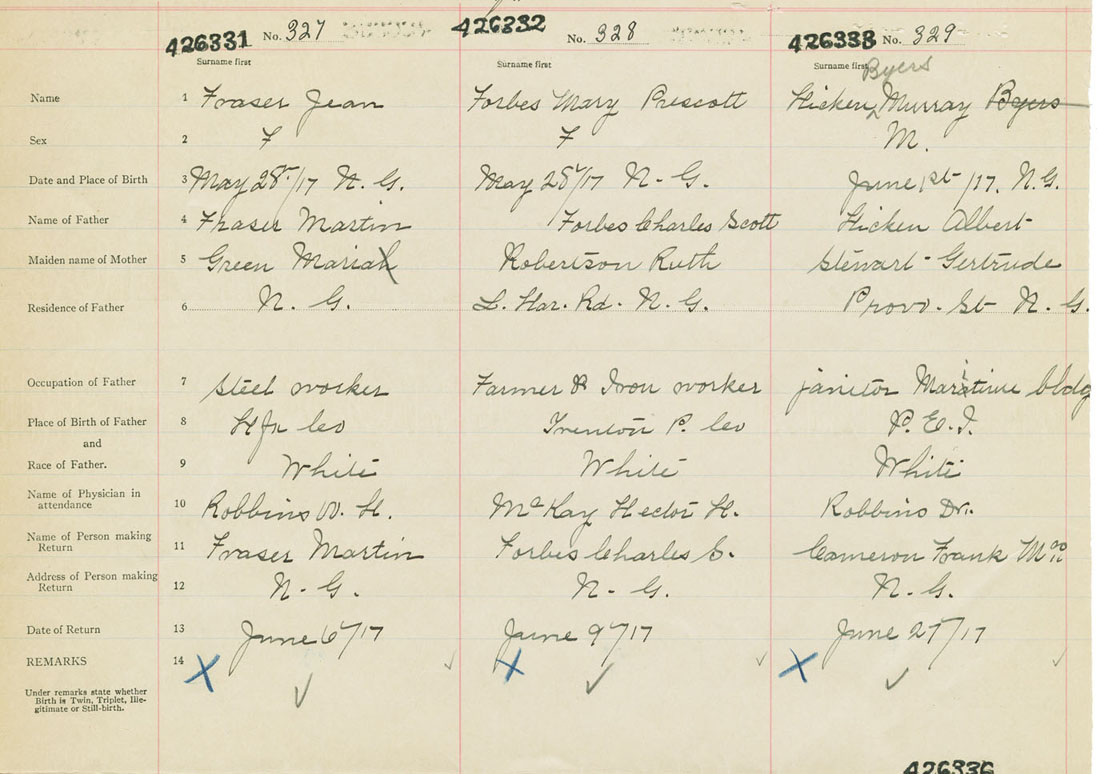 426331 No. 327 426332 No. 328 426333 No. 329
Surname first Surname first Surname first Byers
Name 1 Fraser Jean Forbes Mary Prescott Hicken Murray Byers
Sex 2 F F M.
Date and Place of Birth 3 May 28th/17 N. G. May 28/17 N - G. June 1st /17. N.G.
Name of Father 4 Fraser Martin Forbes Charles Scott Hicken Albert
Maiden name of Mother 5 Green Mariah Robertson Ruth Stewart - Gertrude
Residence of Father 6 N. G. L. Har. Rd. N. G. Provo. St N. G.
Occupation of Father 7 Steel worker Farmer & Iron worker janitor Maritime bldg
Place of Birth of Father 8 Co Trenton P. Co P. E. I.
and
Race of Father. 9 White White White
Name of Physician in
attendance 10 Robbins W. H. McKay Hector H. Robbins Dr.
Name of Person making
Return 11 Fraser Martin Forbes Charles S. Cameron Frank
Address of Person making
Return 12 N - G. N - G. N. G.
Date of Return 13 June 6/17 June 9/17 June 27/17
REMARKS 14
Under remarks state whether
Birth is Twin, Triplet, Ille-
gitimate or Still-birth.
426336